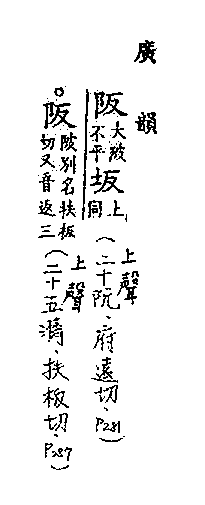 廣韻
阪大陂不平坂上同(上聲二十阮、府遠切、P281)
阪陂別名扶板切又音返三(上聲二十五濟、扶板切、P287)